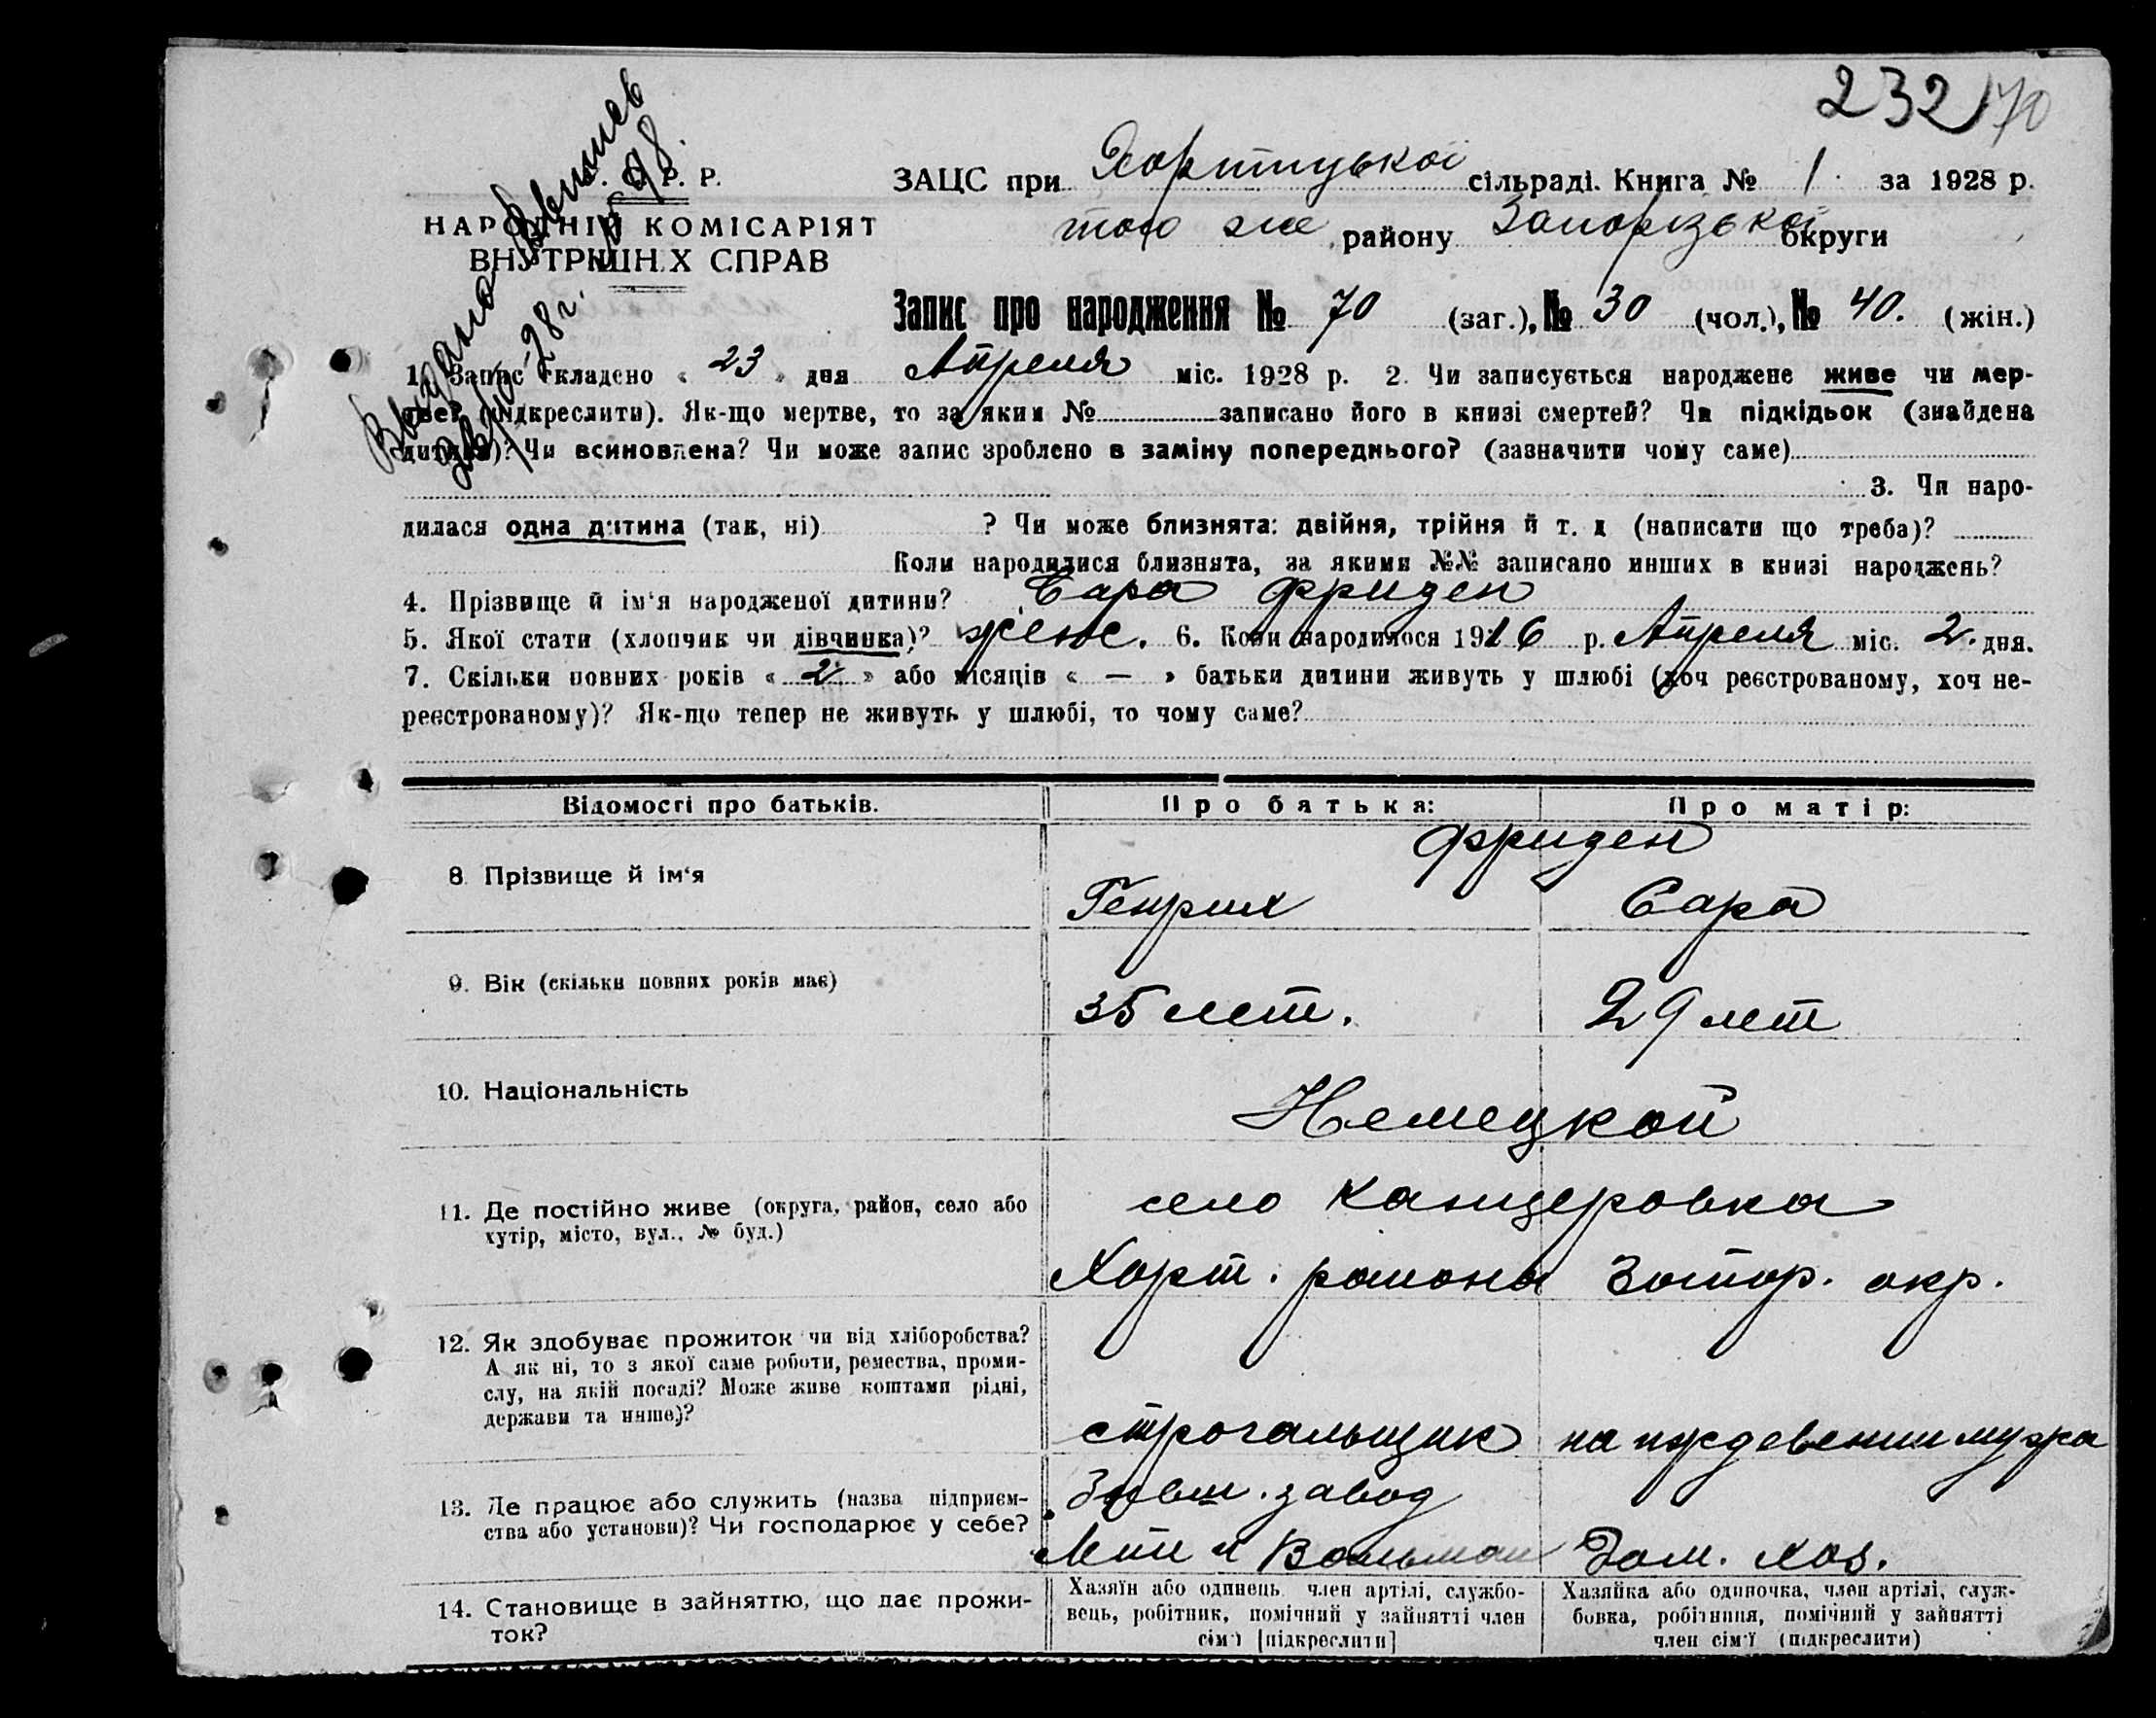 232 70
ЗАЦС при Хортицької сільраді. Книга № 1. за 1928 р.
того же району Запорізької округи
С. Р. Р.
НАРОДНІЙ КОМІСАРІЯТ
ВНУТРІШНІХ СПРАВ
Выдана выпись
Запис про народження № 70 (заг.), № 30 (чол.), № 40. (жін.)
1. Запис складено « 23 » дня Апреля міс. 1928 р. 2. Чи записується народжене живе чи мер-
тве? (підкреслити). Як-що мертве, то за яким № записано його в книзі смертей? Чи підкідьок (знайдена
дитина)? Чи всиновлена? Чи може запис зроблено в заміну попереднього? (зазначити чому саме)
3. Чи наро-
дилася одна дитина (так, ні) ? Чи може близнята: двійня, трійня й т. д (написати що треба)?
Коли народилися близнята, за якими №№ записано инших в книзі народжень?
4. Прізвище й ім'я народженої дитини? Сара Фризен
5. Якої стати (хлопчик чи дівчинка)? женс. 6. Коли народилося 1926 р. Апреля міс. 2. дня.
7. Скільки повних років « 2 » або місяців « — » батьки дитини живуть у шлюбі (хоч реєстрованому, хоч не-
реєстрованому)? Як-що тепер не живуть у шлюбі, то чому саме?
Відомості про батьків. Про батька: Про матір:
Фризен
8. Прізвище й ім'я Генрих Сара
9. Вік (скільки повних років має) 35 лет. 29 лет
10. Національність Немецкой
11. Де постійно живе (округа, район, село або село Канцеровка
хутір, місто, вул., № буд.)
Хорт. района Запор. окр.
12. Як здобуває прожиток чи від хліборобства?
А як ні, то з якої саме роботи, ремества, проми-
слу, на якій посаді? Може живе коштами рідні,
держави та инше)?
строгальщик на иждевении мужа
13. Де працює або служить (назва підприєм- завод
ства або установи)? Чи господарює у себе?
Лепп и Вальман Дом. хоз.
14. Становище в зайняттю, що дає прожи- Хазяїн або одинець, член артілі, службо- Хазяйка або одиночка, член артілі, служ-
ток? вець, робітник, помічний у зайнятті член бовка, робітниця, помічний у зайнятті
сім'ї [підкреслити] член сім'ї (підкреслити)